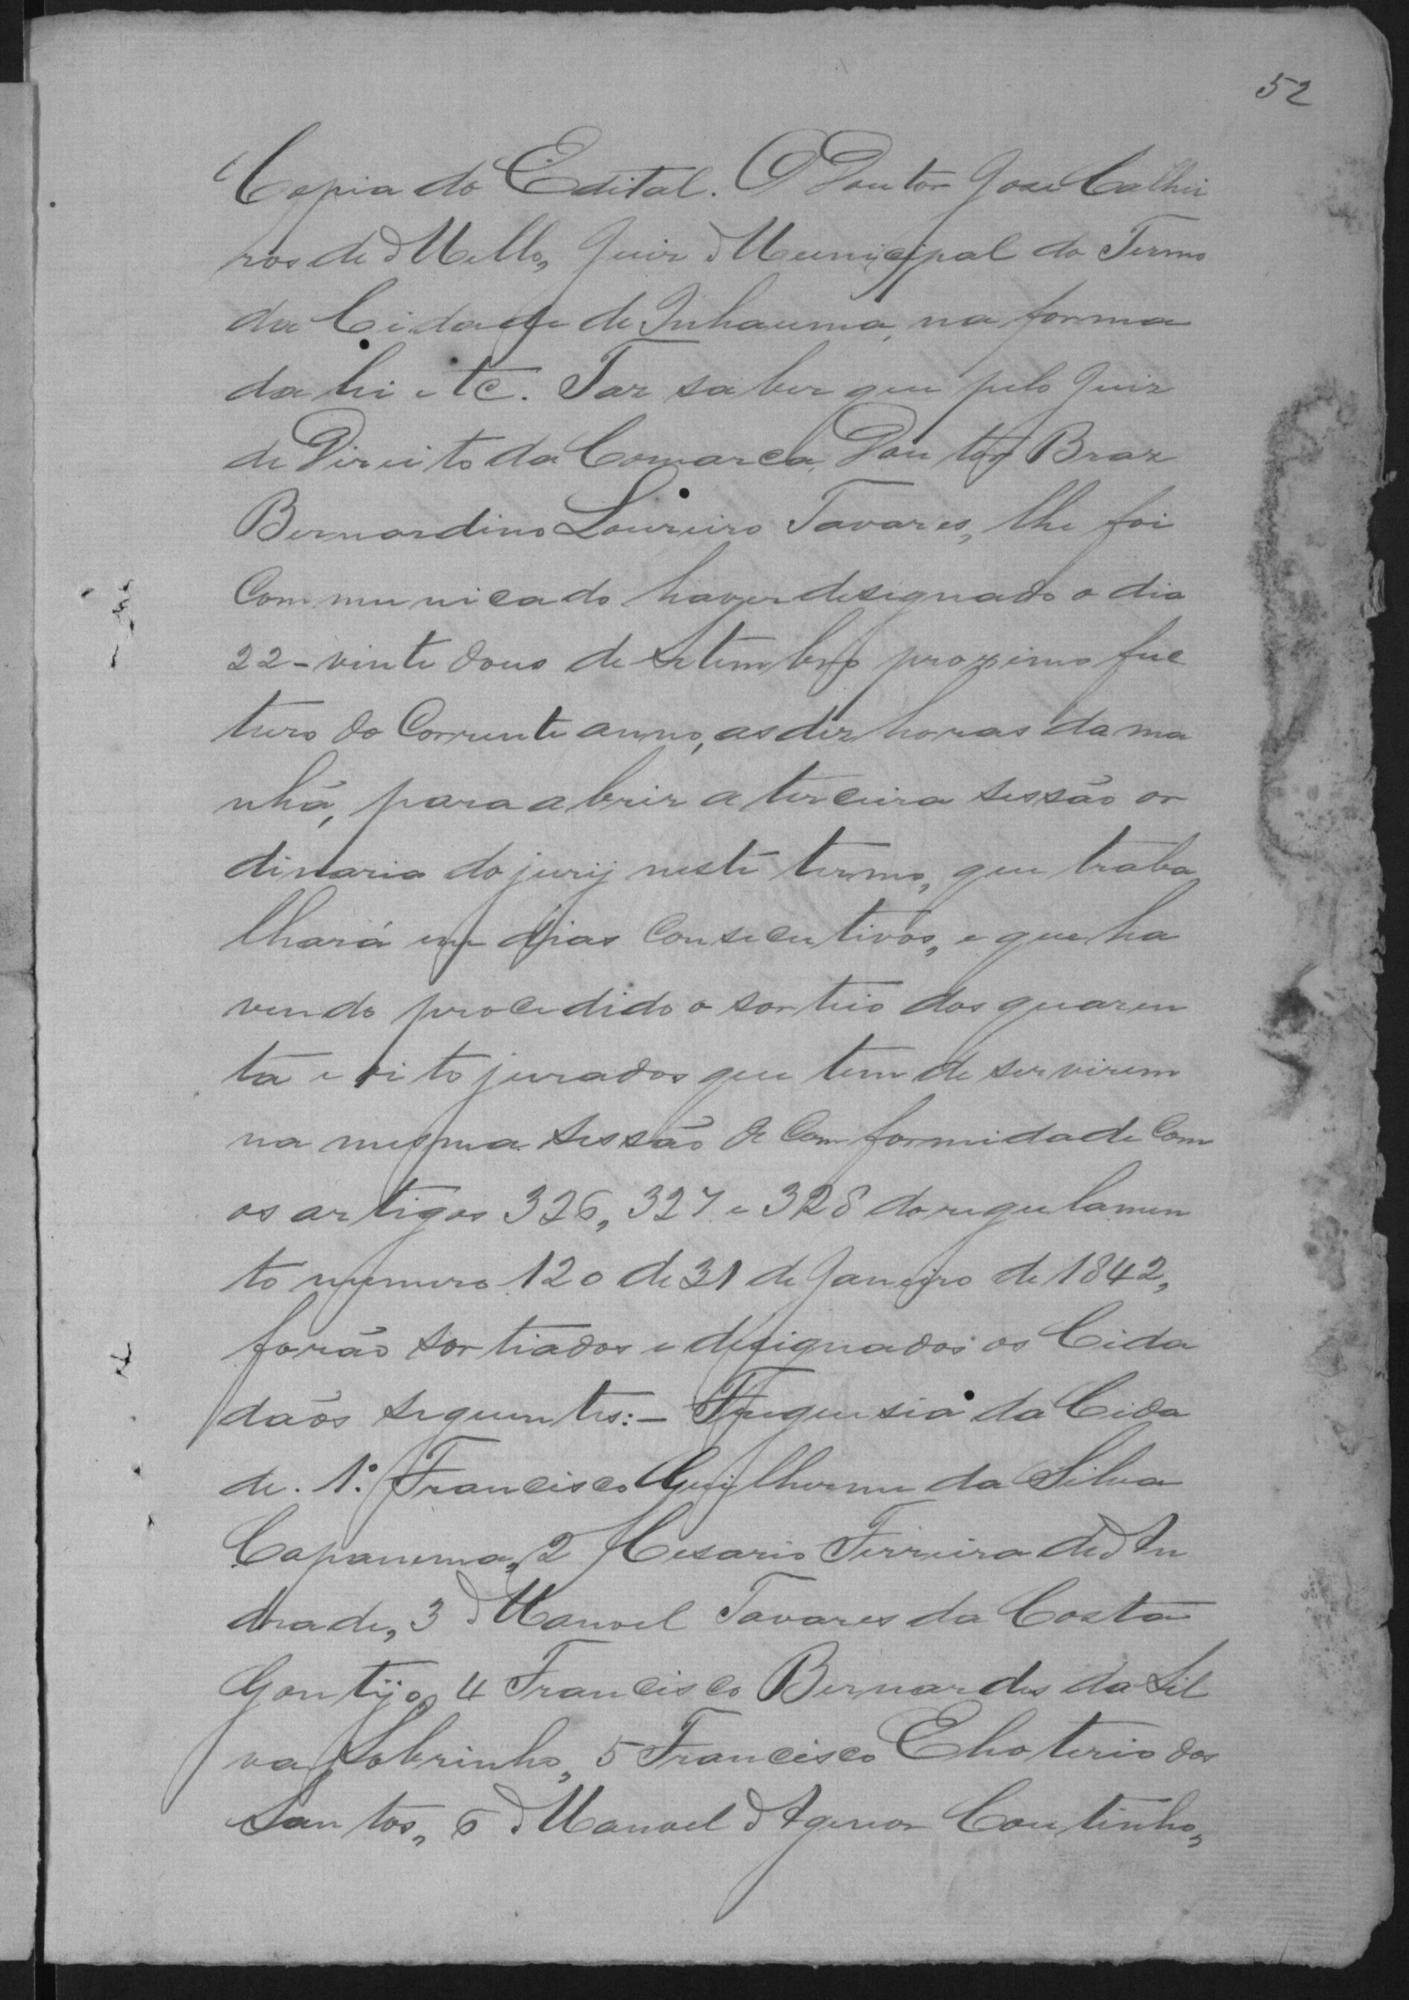 52
Copia do Edital. O Doutor José Calhei
ros de Mello, Juiz Municipal do Termo
da Cidade de Inhauma, na forma
da lei etc. Faz saber que pelo Juiz
de Direito da Comarca, Doutor Braz
Bernardino Loureiro Tavares, lhe foi
Communicado haver designado o dia
22 - vinte dous de Setembro proximo fu
turo do Corrente anno, as dez horas da ma
nhã, para abrir a terceira sessão or
dinaria do jury neste termo, que traba
lhará em dias Consecutivos, e que ha
vendo procedido o sorteio dos quaren
ta e oito jurados que tem de servirem
na mesma sessão de Comformidade Com
os artigos 326, 327 e 328 do regulamen
to numero 120 de 31 de Janeiro de 1842,
forão sortiados e designados os Cida
dãos seguintes: - Freguesia da Cida
de. 1º. Francisco Guilherme da Silva
Capanema, 2 Cesario Ferreira de An
drade, 3 Manoel Tavares da Costa
Gontijo, 4 Francisco Bernardes da Sil
va Sobrinho, 5 Francisco Elioterio dos
Santos, 6 Manoel Agenor Coutinho,